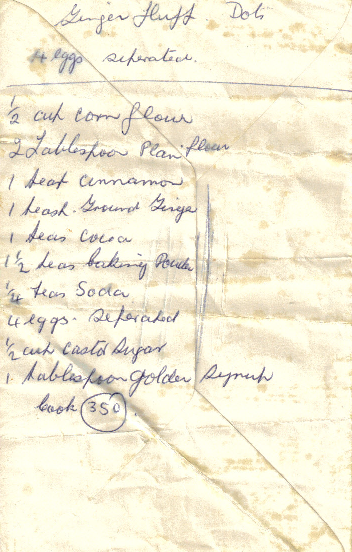 Ginger Fluff. Dots
4 eggs seperated.
½ cup corn flour
2 Tablespoon Plan flour
1 teas cinnamon
1 teas. Ground Ginge
1 teas cocoa
1½ teas baking Powder
¼ teas Soda
4 eggs. seperated
½ cup castor sugar
1 tablespoon golden syrup
Cook 350.